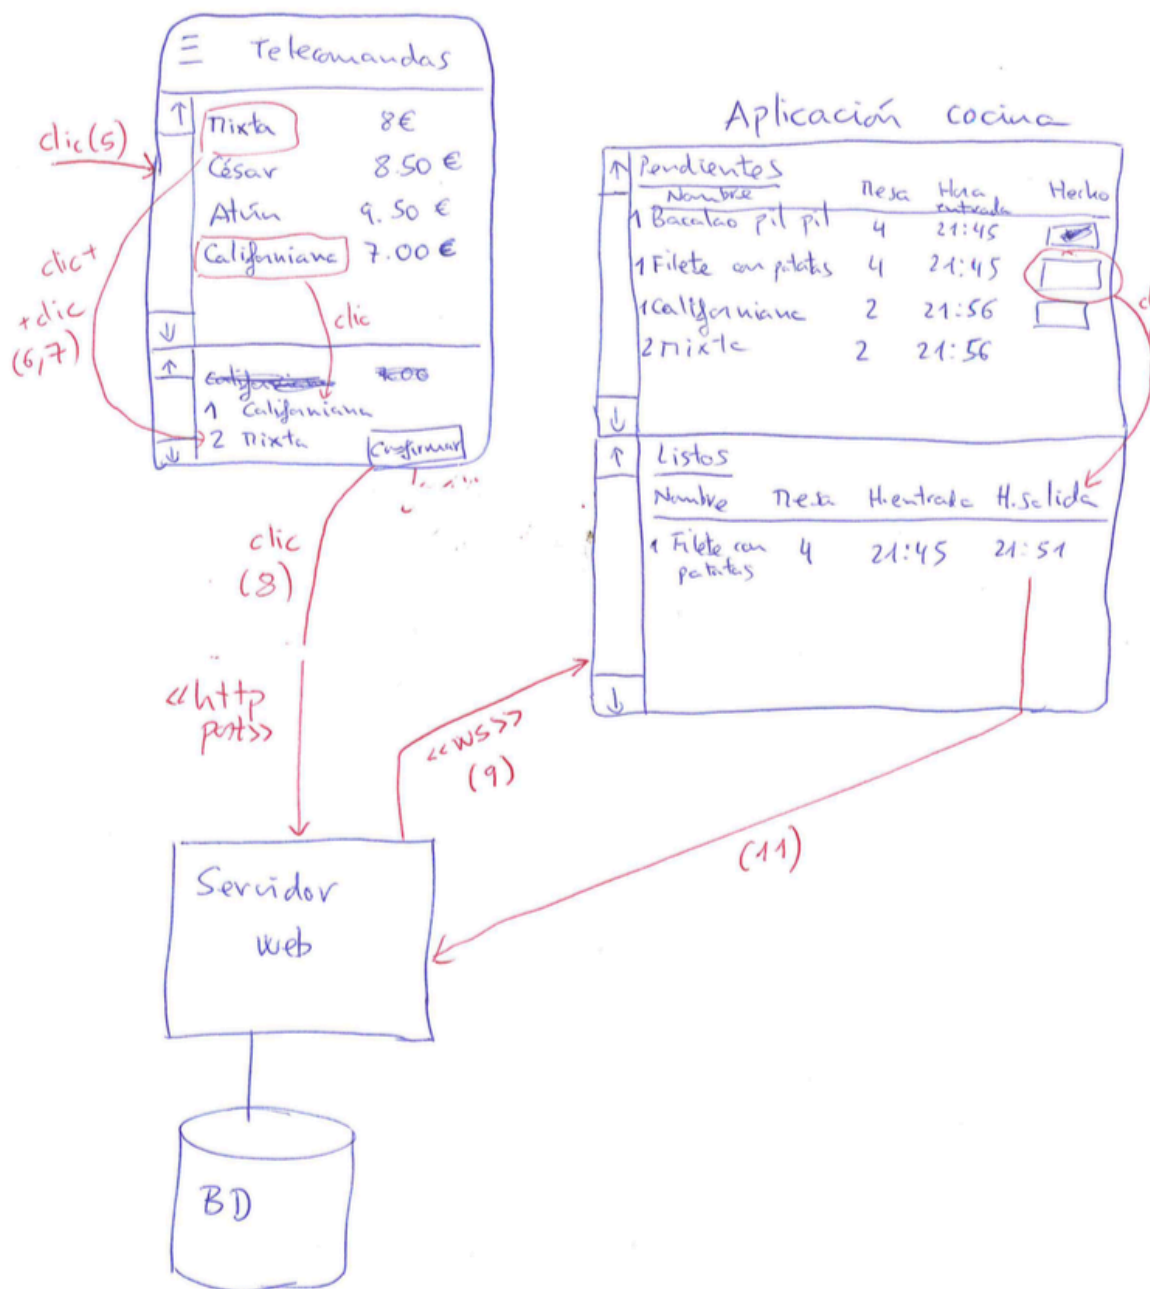 Telecomandas
clic(5)
Mixta 8€
César 8.50 €
Atún 9.50 €
Californiana 7.00 €
clic+
+clic
(6,7)
clic
1 Californiana
2 Mixta
Confirmar
clic
(8)
<<http
post>>
<<ws>>
(9)
(11)
Servidor
web
BD
Aplicación cocina
Pendientes
Nombre Mesa Hora entrada Hecho
1 Bacalao pil pil 4 21:45
1 Filete con patatas 4 21:45
1 Californiana 2 21:56
2 Mixta 2 21:56
Listos
Nombre Mesa H.entrada H.salida
1 Filete con 4 21:45 21:51
patatas